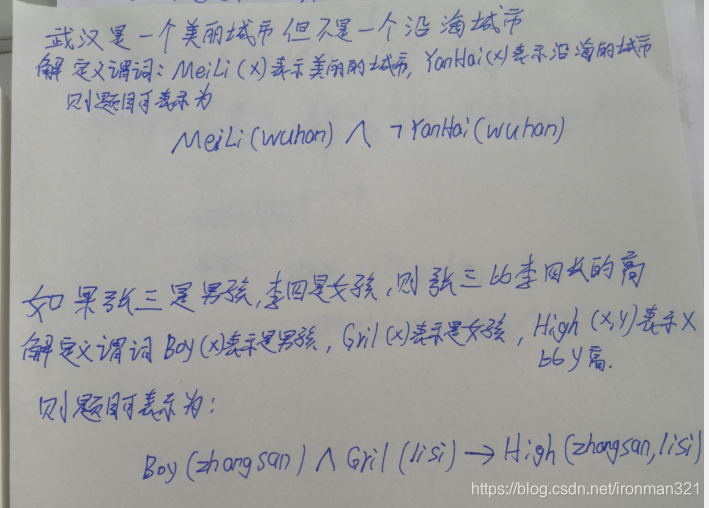 武汉是一个美丽城市但不是一个沿海城市
解 定义谓词：MeiLi(x)表示美丽的城市，YanHai(x)表示沿海的城市
则题目可表示为
MeiLi(wuhan) ∧ ¬YanHai(wuhan)
如果张三是男孩，李四是女孩，则张三比李四长的高
解 定义谓词 Boy(x)表示是男孩，Gril(x)表示是女孩，High(x,y)表示x
比y高.
则题目可表示为：
Boy(zhangsan) ∧ Gril(lisi) → High(zhangsan,lisi)
https://blog.csdn.net/ironman321